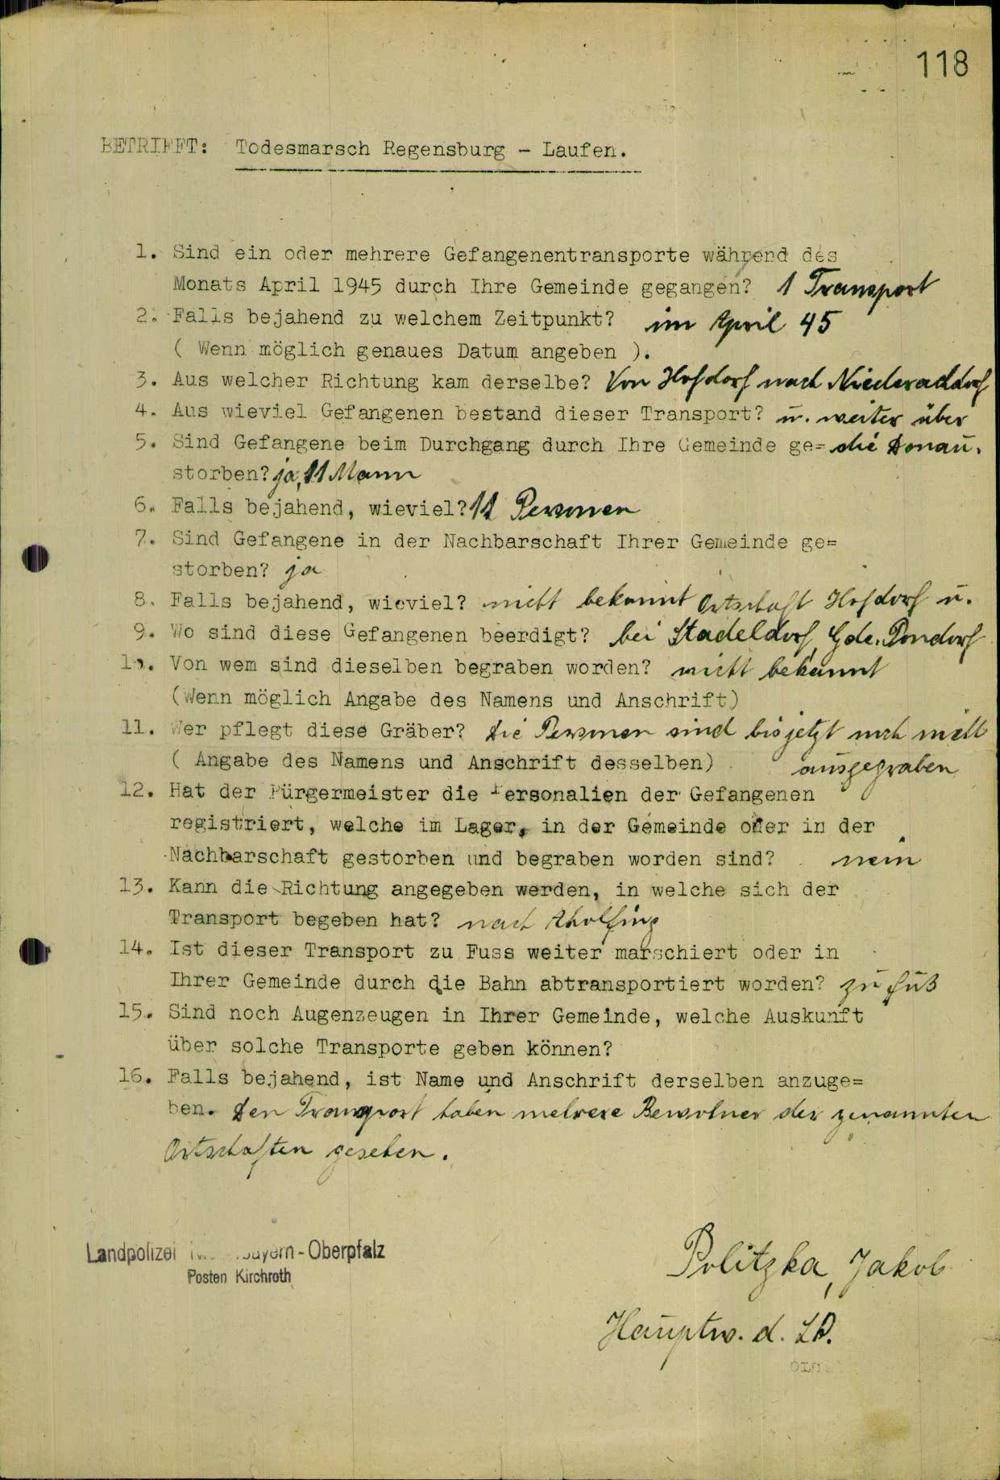 118
BETRIFFT: Todesmarsch Regensburg - Laufen.
1. Sind ein oder mehrere Gefangenentransporte während des
Monats April 1945 durch Ihre Gemeinde gegangen? 1 Transport
2. Falls bejahend zu welchem Zeitpunkt? im April 45
( Wenn möglich genaues Datum angeben ).
3. Aus welcher Richtung kam derselbe? Von Hofdorf nach Niederachdorf
4. Aus wieviel Gefangenen bestand dieser Transport? u. weiter über
5. Sind Gefangene beim Durchgang durch Ihre Gemeinde ge= die Donau.
storben? ja, 11 Mann
6. Falls bejahend, wieviel? 11 Personen
7. Sind Gefangene in der Nachbarschaft Ihrer Gemeinde ge=
storben? ja
8. Falls bejahend, wieviel? nicht bekannt Ortschaft Hofdorf u.
9. Wo sind diese Gefangenen beerdigt? bei Stadeldorf, Gde. Pondorf
10. Von wem sind dieselben begraben worden? nicht bekannt
(Wenn möglich Angabe des Namens und Anschrift)
11. Wer pflegt diese Gräber? Die Personen sind bis jetzt noch nicht
( Angabe des Namens und Anschrift desselben) ausgegraben
12. Hat der Bürgermeister die Personalien der Gefangenen
registriert, welche im Lager, in der Gemeinde oder in der
Nachbarschaft gestorben und begraben worden sind? nein
13. Kann die Richtung angegeben werden, in welche sich der
Transport begeben hat? nach Aholfing
14. Ist dieser Transport zu Fuss weiter marschiert oder in
Ihrer Gemeinde durch die Bahn abtransportiert worden? zu Fuß
15. Sind noch Augenzeugen in Ihrer Gemeinde, welche Auskunft
über solche Transporte geben können?
16. Falls bejahend, ist Name und Anschrift derselben anzuge=
ben. Den Transport haben mehrere Bewohner der genannten
Ortschaften gesehen.
Landpolizei -Oberpfalz
Posten Kirchroth
Politzka, Jakob
Hauptw. d. LP.